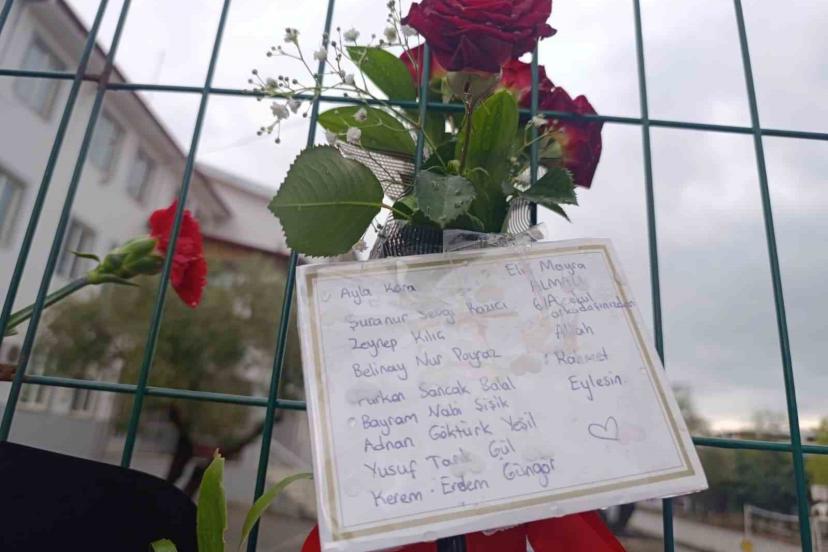 Ayla Kara
Şuranur Sevgi Kazıcı
Zeynep Kılıç
Belinay Nur Poyraz
Furkan Sancak Balal
Bayram Nabi Şişik
Adnan Göktürk Yeşil
Yusuf Tarık Gül
Kerem Erdem Güngör
Elif Mayra
6/A okul
arkadaşınızdan
Allah
Rahmet
Eylesin